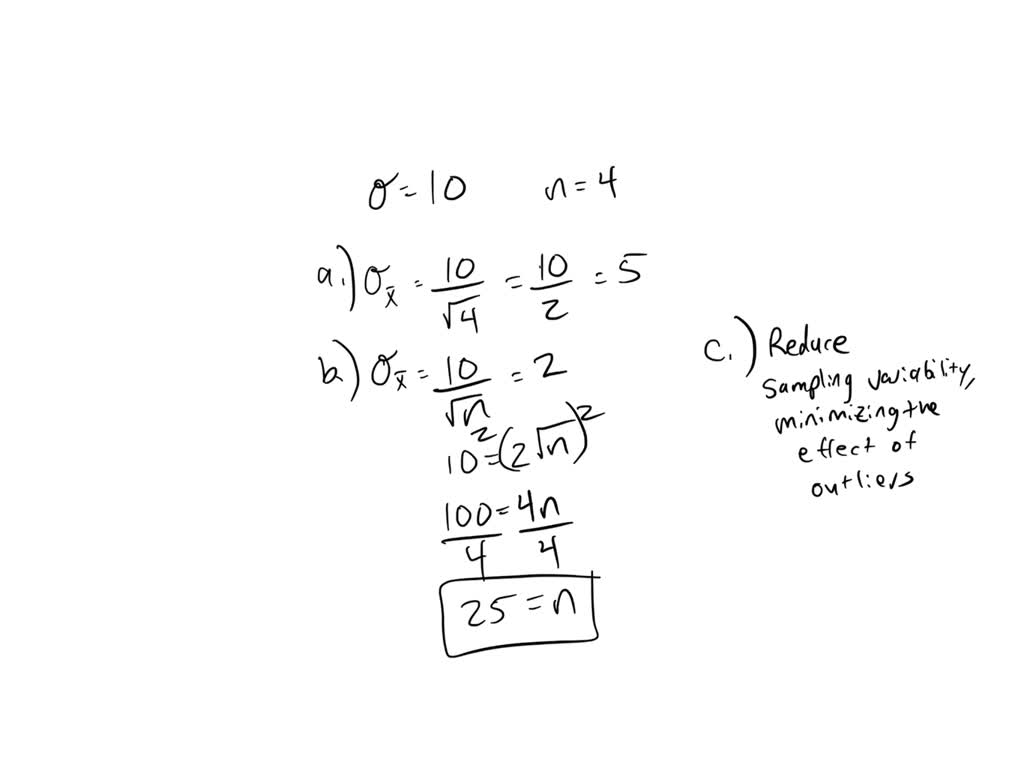 σ = 10 n = 4
a.) σx̄ = 10/√4 = 10/2 = 5
b.) σx̄ = 10/√n = 2
10² = (2√n)²
100/4 = 4n/4
25 = n
c.) Reduce
sampling variability,
minimizing the
effect of
outliers